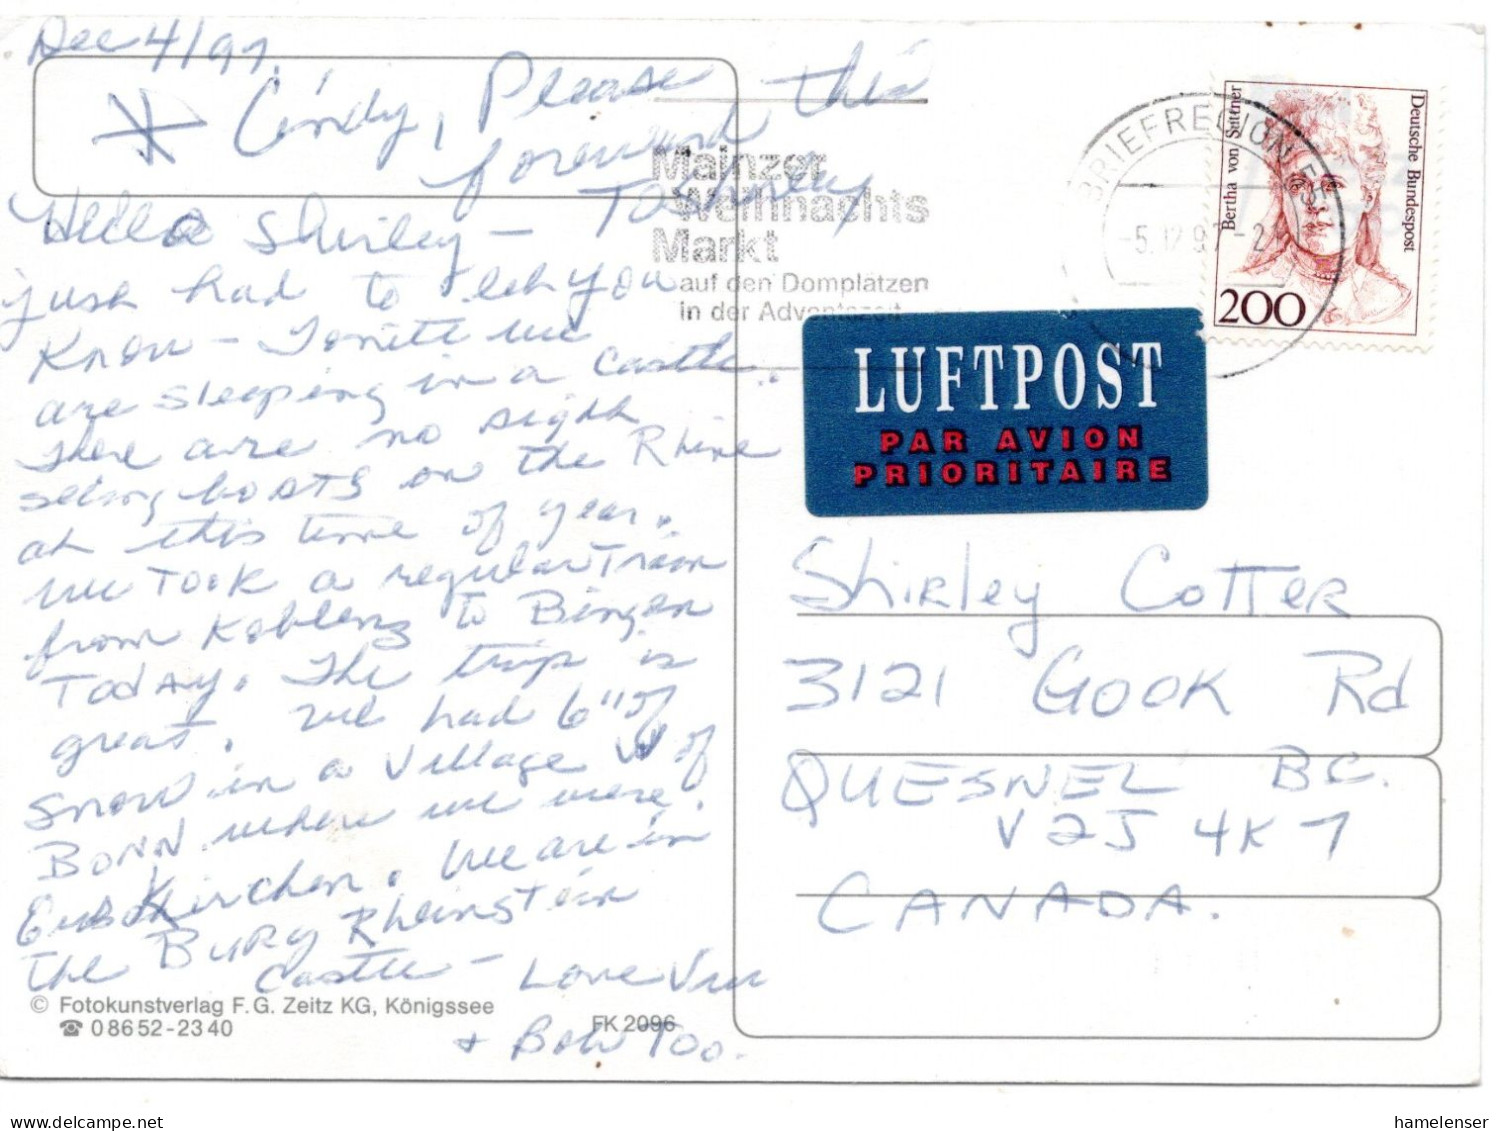 Dec 4/97
* Cindy, Please
forward this
To Shirley
Hello Shirley -
just had to let you
know - Tonite we
are sleeping in a castle.
There are no sight
seeing boats on the Rhine
at this time of year.
We Took a regular Train
from Koblenz to Bingen
Today. The trip is
great. We had 6" of
snow in a Village W of
Bonn where we were.
Euskirchen. We are in
the Burg Rheinstein
Castle - Love
+ Bob Too.
© Fotokunstverlag F. G. Zeitz KG, Königssee
☎ 0 86 52 - 23 40
FK 2096
Mainzer
Weihnachts
Markt
auf den Domplätzen
in der Adventszeit
BRIEFREGION 55
-5.12.97-21
Bertha von Suttner
Deutsche Bundespost
200
LUFTPOST
PAR AVION
PRIORITAIRE
Shirley Cotter
3121 Gook Rd
QUESNEL BC.
V2J 4K7
CANADA.
hamelenser